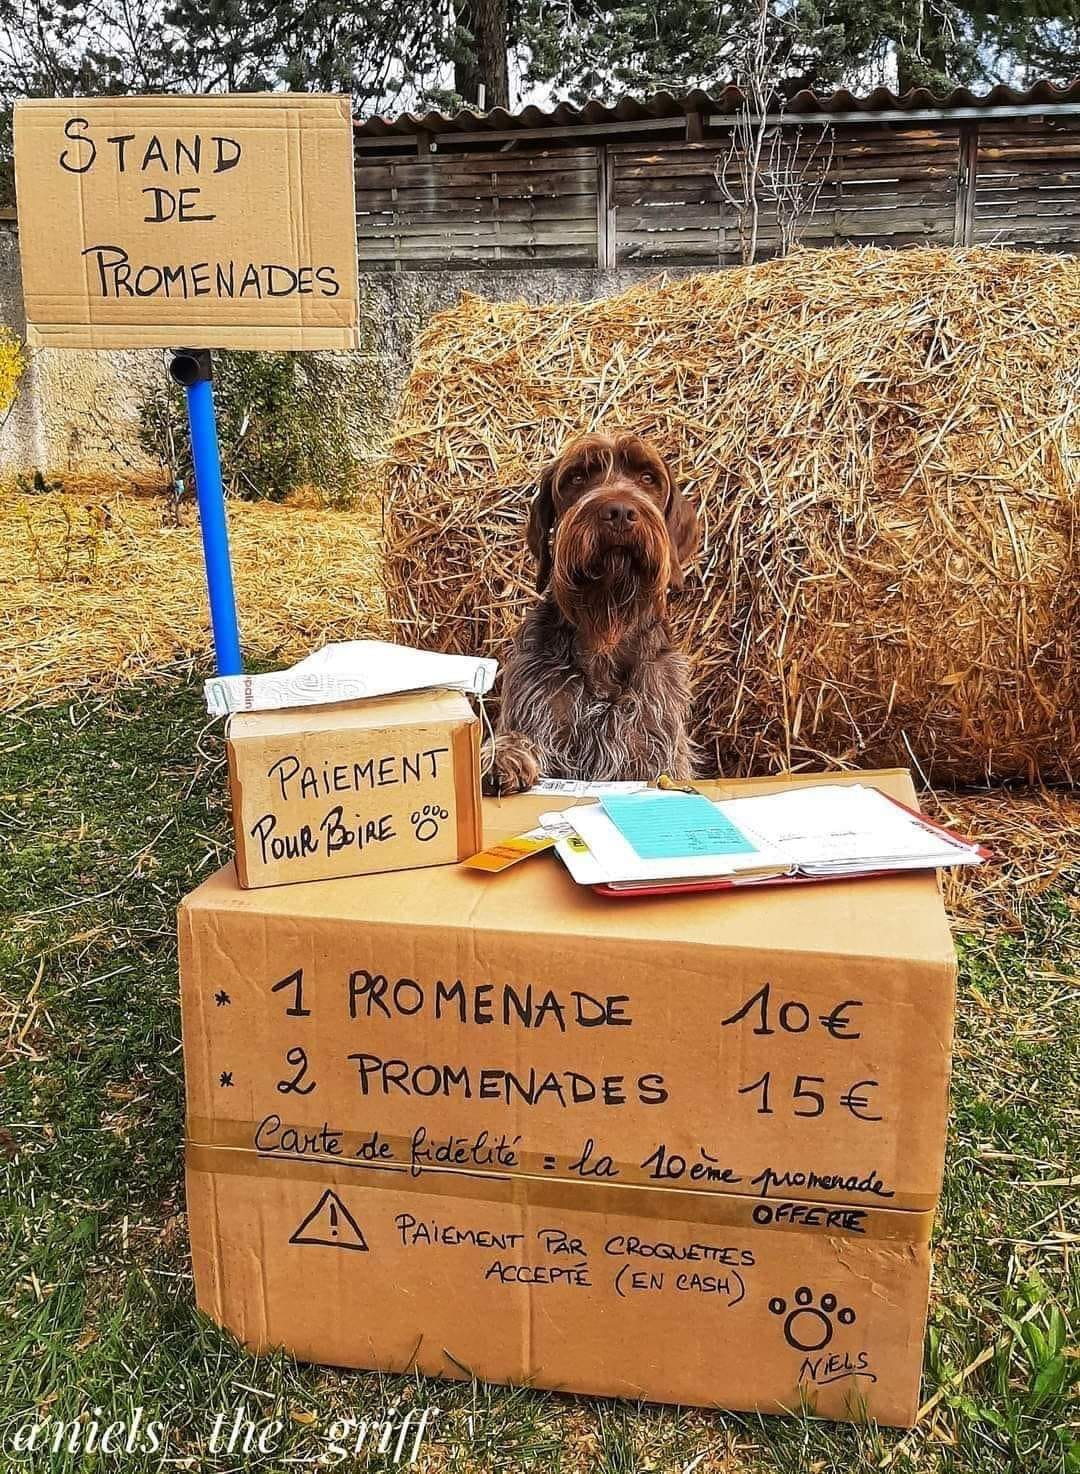 STAND
DE
PROMENADES
PAIEMENT
POURBOIRE
* 1 PROMENADE 10€
* 2 PROMENADES 15€
Carte de fidélité = la 10ème promenade
OFFERTE
PAIEMENT PAR CROQUETTES
ACCEPTÉ (EN CASH)
NIELS
@niels_the_griff